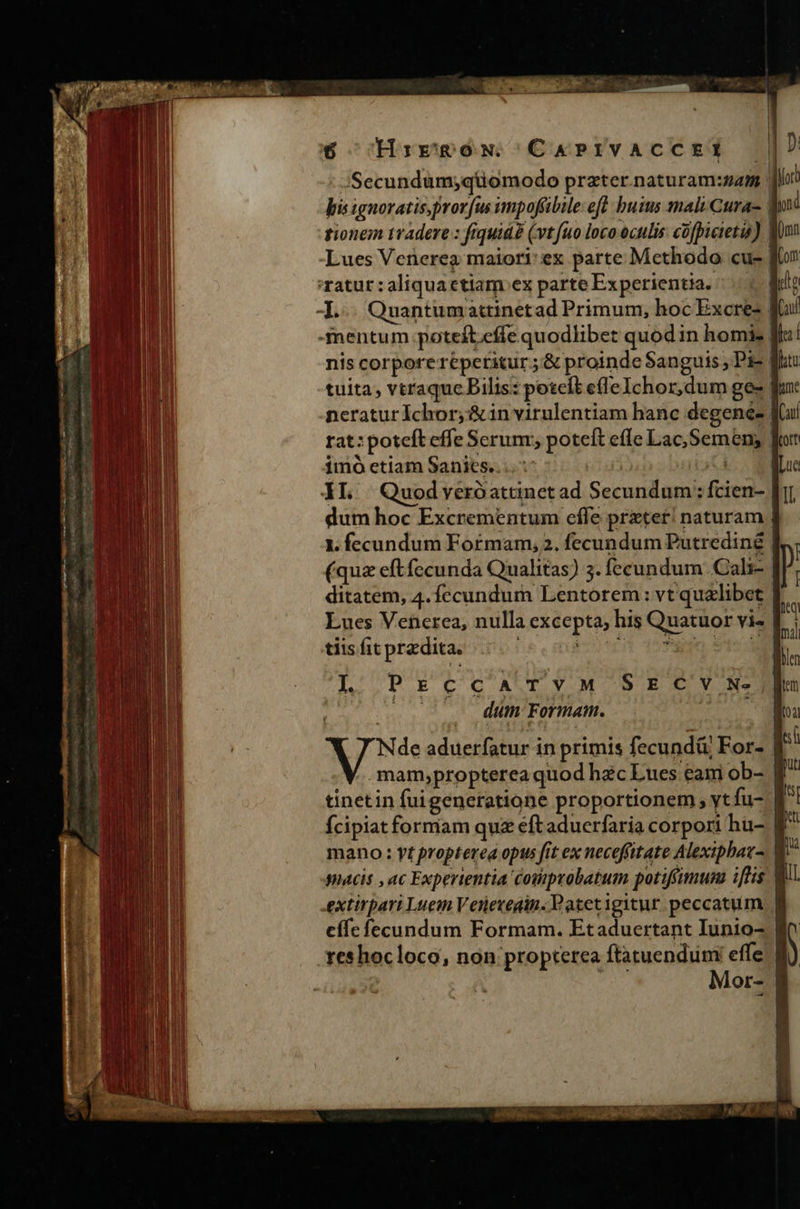 6 HIERON. CAPIVACCEI
Secundùm, qùomodo præter naturam: nam
his ignoratis, prorſus impoßibile eſt huius mali Cura-
tionem tradere: ſiquidẽ (vt ſuo loco oculis cõſpicietis)
Lues Venerea maiori ex parte Methodo cu-
ratur: aliqua etiam ex parte Experientia.
I. Quantum attinet ad Primum, hoc Excre-
mentum poteſt eſſe quodlibet quod in homi-
nis corpore reperitur; & proinde Sanguis, Pi-
tuita, vtraque Bilis: poteſt eſſe Ichor, dum ge-
neratur Ichor, & in virulentiam hanc degene-
rat: poteſt eſſe Serum, poteſt eſſe Lac, Semen,
imò etiam Sanies.
II. Quod verò attinet ad Secundum: ſcien-
dum hoc Excrementum eſſe præter naturam
1. ſecundum Formam, 2. ſecundum Putredinẽ
(quæ eſt ſecunda Qualitas) 3. ſecundum Cali-
ditatem, 4. ſecundum Lentorem: vt quælibet
Lues Venerea, nulla excepta, his Quatuor vi-
tiis ſit prædita.
I. PECCATVM SECVN-
dum Formam.
VNde aduerſatur in primis ſecundũ For-
mam, propterea quod hæc Lues eam ob-
tinet in ſui generatione proportionem, vt ſu-
ſcipiat formam quæ eſt aduerſaria corpori hu-
mano: vt propterea opus ſit ex neceßitate Alexiphar-
macis, ac Experientia comprobatum potißimum iſtis
extirpari Luem Veneream. Patet igitur peccatum
eſſe ſecundum Formam. Et aduertant Iunio-
res hoc loco, non propterea ſtatuendum eſſe
Mor-